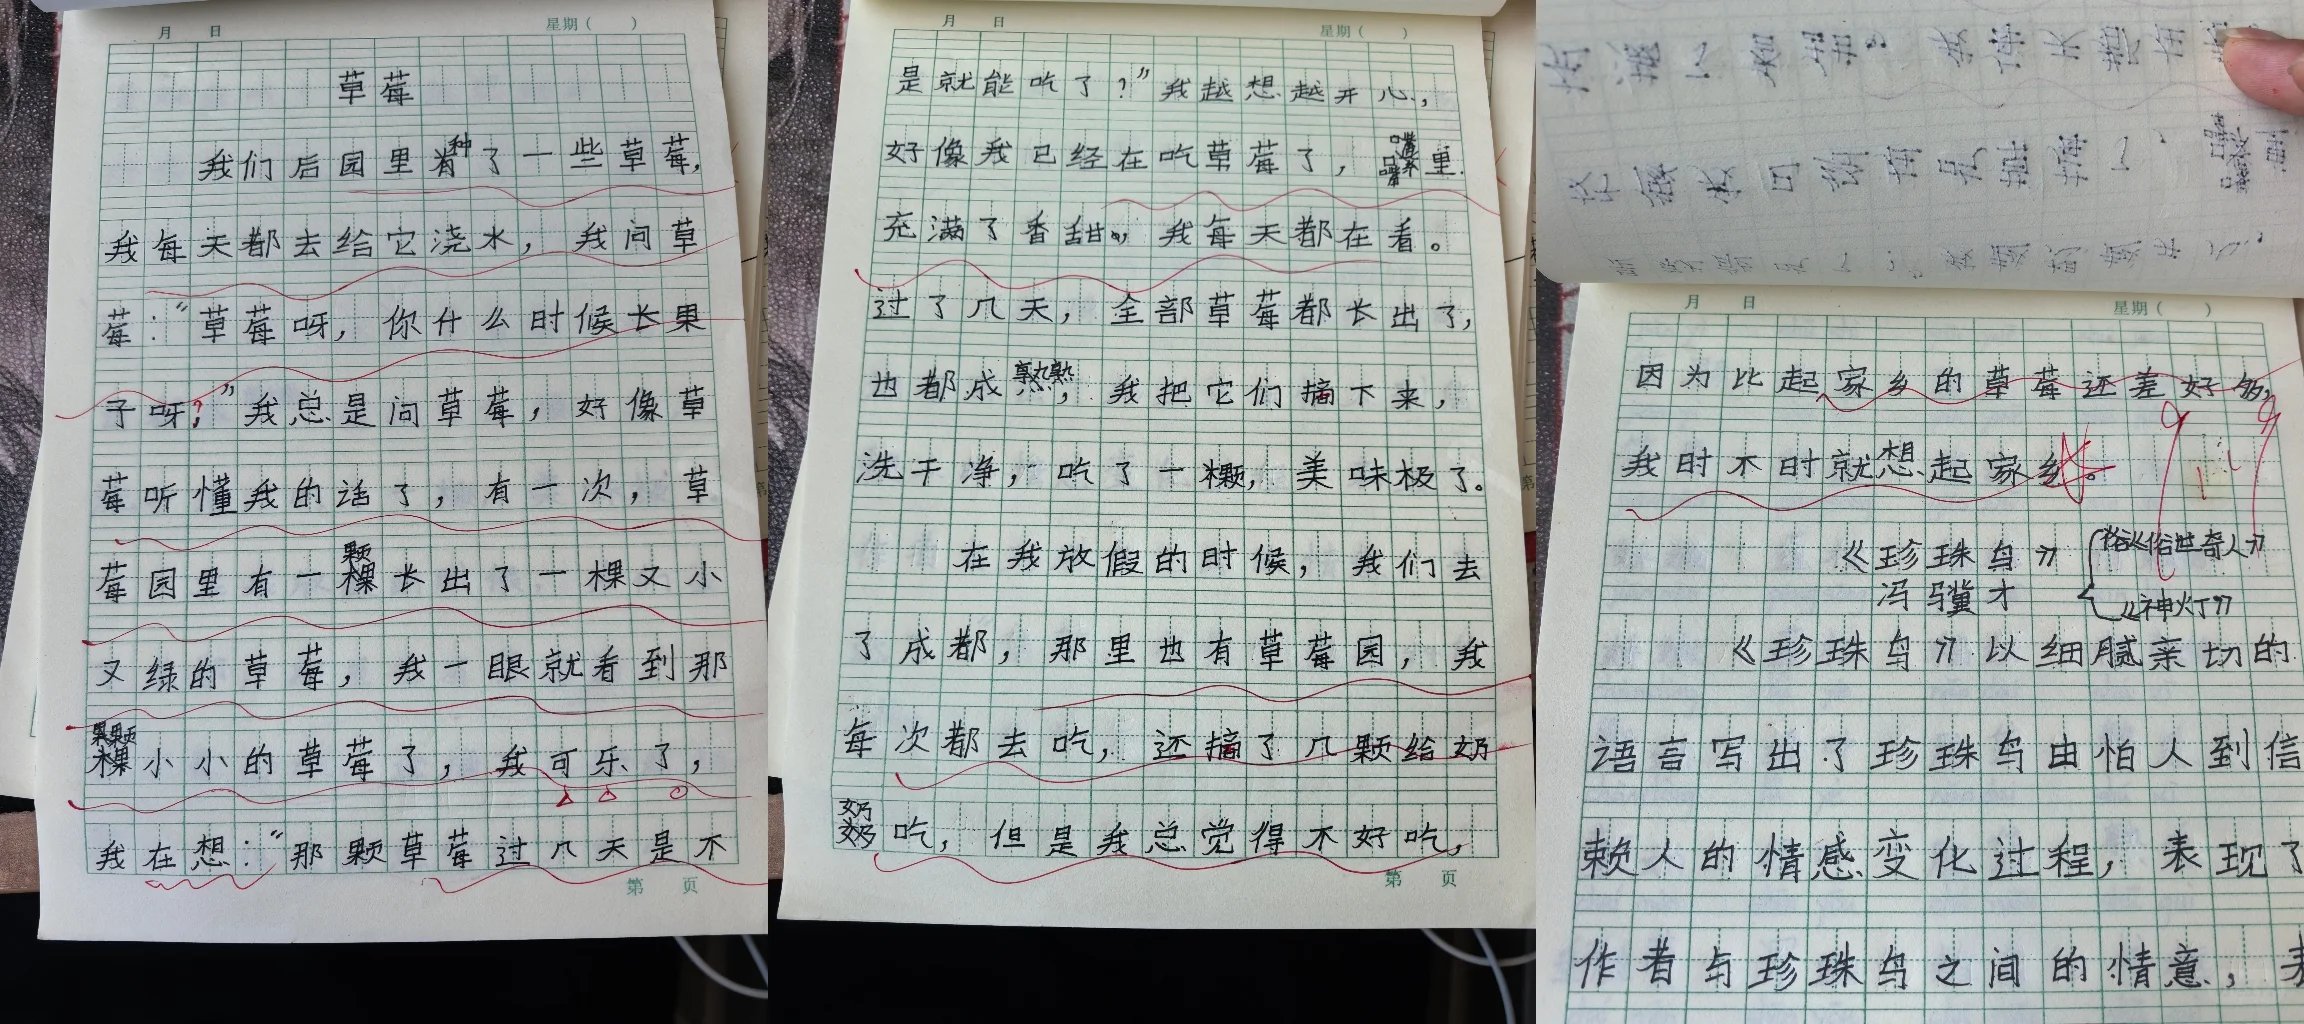 月 日 星期（ ）
草莓
我们后园里种了一些草莓，
我每天都去给它浇水，我问草
莓：“草莓呀，你什么时候长果
子呀？”我总是问草莓，好像草
莓听懂我的话了，有一次，草
莓园里有一颗长出了一棵又小
又绿的草莓，我一眼就看到那
颗小小的草莓了，我可乐了，
我在想：“那颗草莓过几天是不
第 页
月 日 星期（ ）
是就能吃了？”我越想越开心，
好像我已经在吃草莓了，嘴里
充满了香甜。我每天都在看。
过了几天，全部草莓都长出了，
也都成熟，我把它们摘下来，
洗干净，吃了一颗，美味极了。
在我放假的时候，我们去
了成都，那里也有草莓园，我
每次都去吃，还摘了几颗给奶
奶吃，但是我总觉得不好吃，
第 页
月 日 星期（ ）
因为比起家乡的草莓还差好多，
我时不时就想起家乡。
《珍珠鸟》
《俗世奇人》
冯骥才
《神灯》
《珍珠鸟》以细腻亲切的
语言写出了珍珠鸟由怕人到信
赖人的情感变化过程，表现了
作者与珍珠鸟之间的情意，